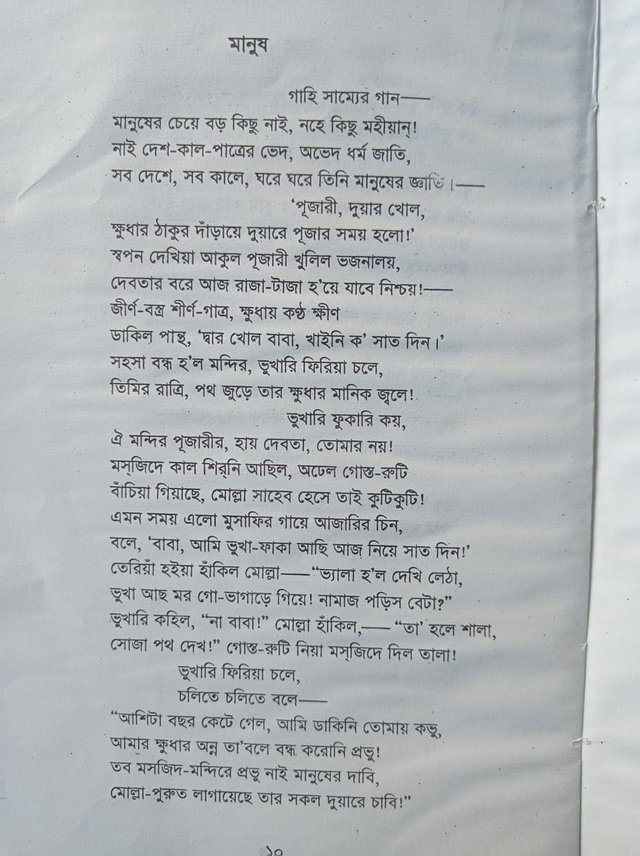 মানুষ
গাহি সাম্যের গান—
মানুষের চেয়ে বড় কিছু নাই, নহে কিছু মহীয়ান্!
নাই দেশ-কাল-পাত্রের ভেদ, অভেদ ধর্ম জাতি,
সব দেশে, সব কালে, ঘরে ঘরে তিনি মানুষের জ্ঞাতি।—
‘পূজারী, দুয়ার খোল,
ক্ষুধার ঠাকুর দাঁড়ায়ে দুয়ারে পূজার সময় হলো!’
স্বপন দেখিয়া আকুল পূজারী খুলিল ভজনালয়,
দেবতার বরে আজ রাজা-টাজা হ’য়ে যাবে নিশ্চয়!—
জীর্ণ-বস্ত্র শীর্ণ-গাত্র, ক্ষুধায় কণ্ঠ ক্ষীণ
ডাকিল পান্থ, ‘দ্বার খোল বাবা, খাইনি ক’ সাত দিন।’
সহসা বন্ধ হ’ল মন্দির, ভুখারি ফিরিয়া চলে,
তিমির রাত্রি, পথ জুড়ে তার ক্ষুধার মানিক জ্বলে!
ভুখারি ফুকারি কয়,
ঐ মন্দির পূজারীর, হায় দেবতা, তোমার নয়!
মস্‌জিদে কাল শির্‌নি আছিল, অঢেল গোস্ত-রুটি
বাঁচিয়া গিয়াছে, মোল্লা সাহেব হেসে তাই কুটিকুটি!
এমন সময় এলো মুসাফির গায়ে আজারির চিন,
বলে, ‘বাবা, আমি ভুখা-ফাকা আছি আজ নিয়ে সাত দিন!’
তেরিয়াঁ হইয়া হাঁকিল মোল্লা—“ভ্যালা হ’ল দেখি লেঠা,
ভুখা আছ মর গো-ভাগাড়ে গিয়ে! নামাজ পড়িস বেটা?”
ভুখারি কহিল, “না বাবা!” মোল্লা হাঁকিল,—“তা’ হলে শালা,
সোজা পথ দেখ!” গোস্ত-রুটি নিয়া মস্‌জিদে দিল তালা!
ভুখারি ফিরিয়া চলে,
চলিতে চলিতে বলে—
“আশিটা বছর কেটে গেল, আমি ডাকিনি তোমায় কভু,
আমার ক্ষুধার অন্ন তা’বলে বন্ধ করোনি প্রভু!
তব মসজিদ-মন্দিরে প্রভু নাই মানুষের দাবি,
মোল্লা-পুরুত লাগায়েছে তার সকল দুয়ারে চাবি!”